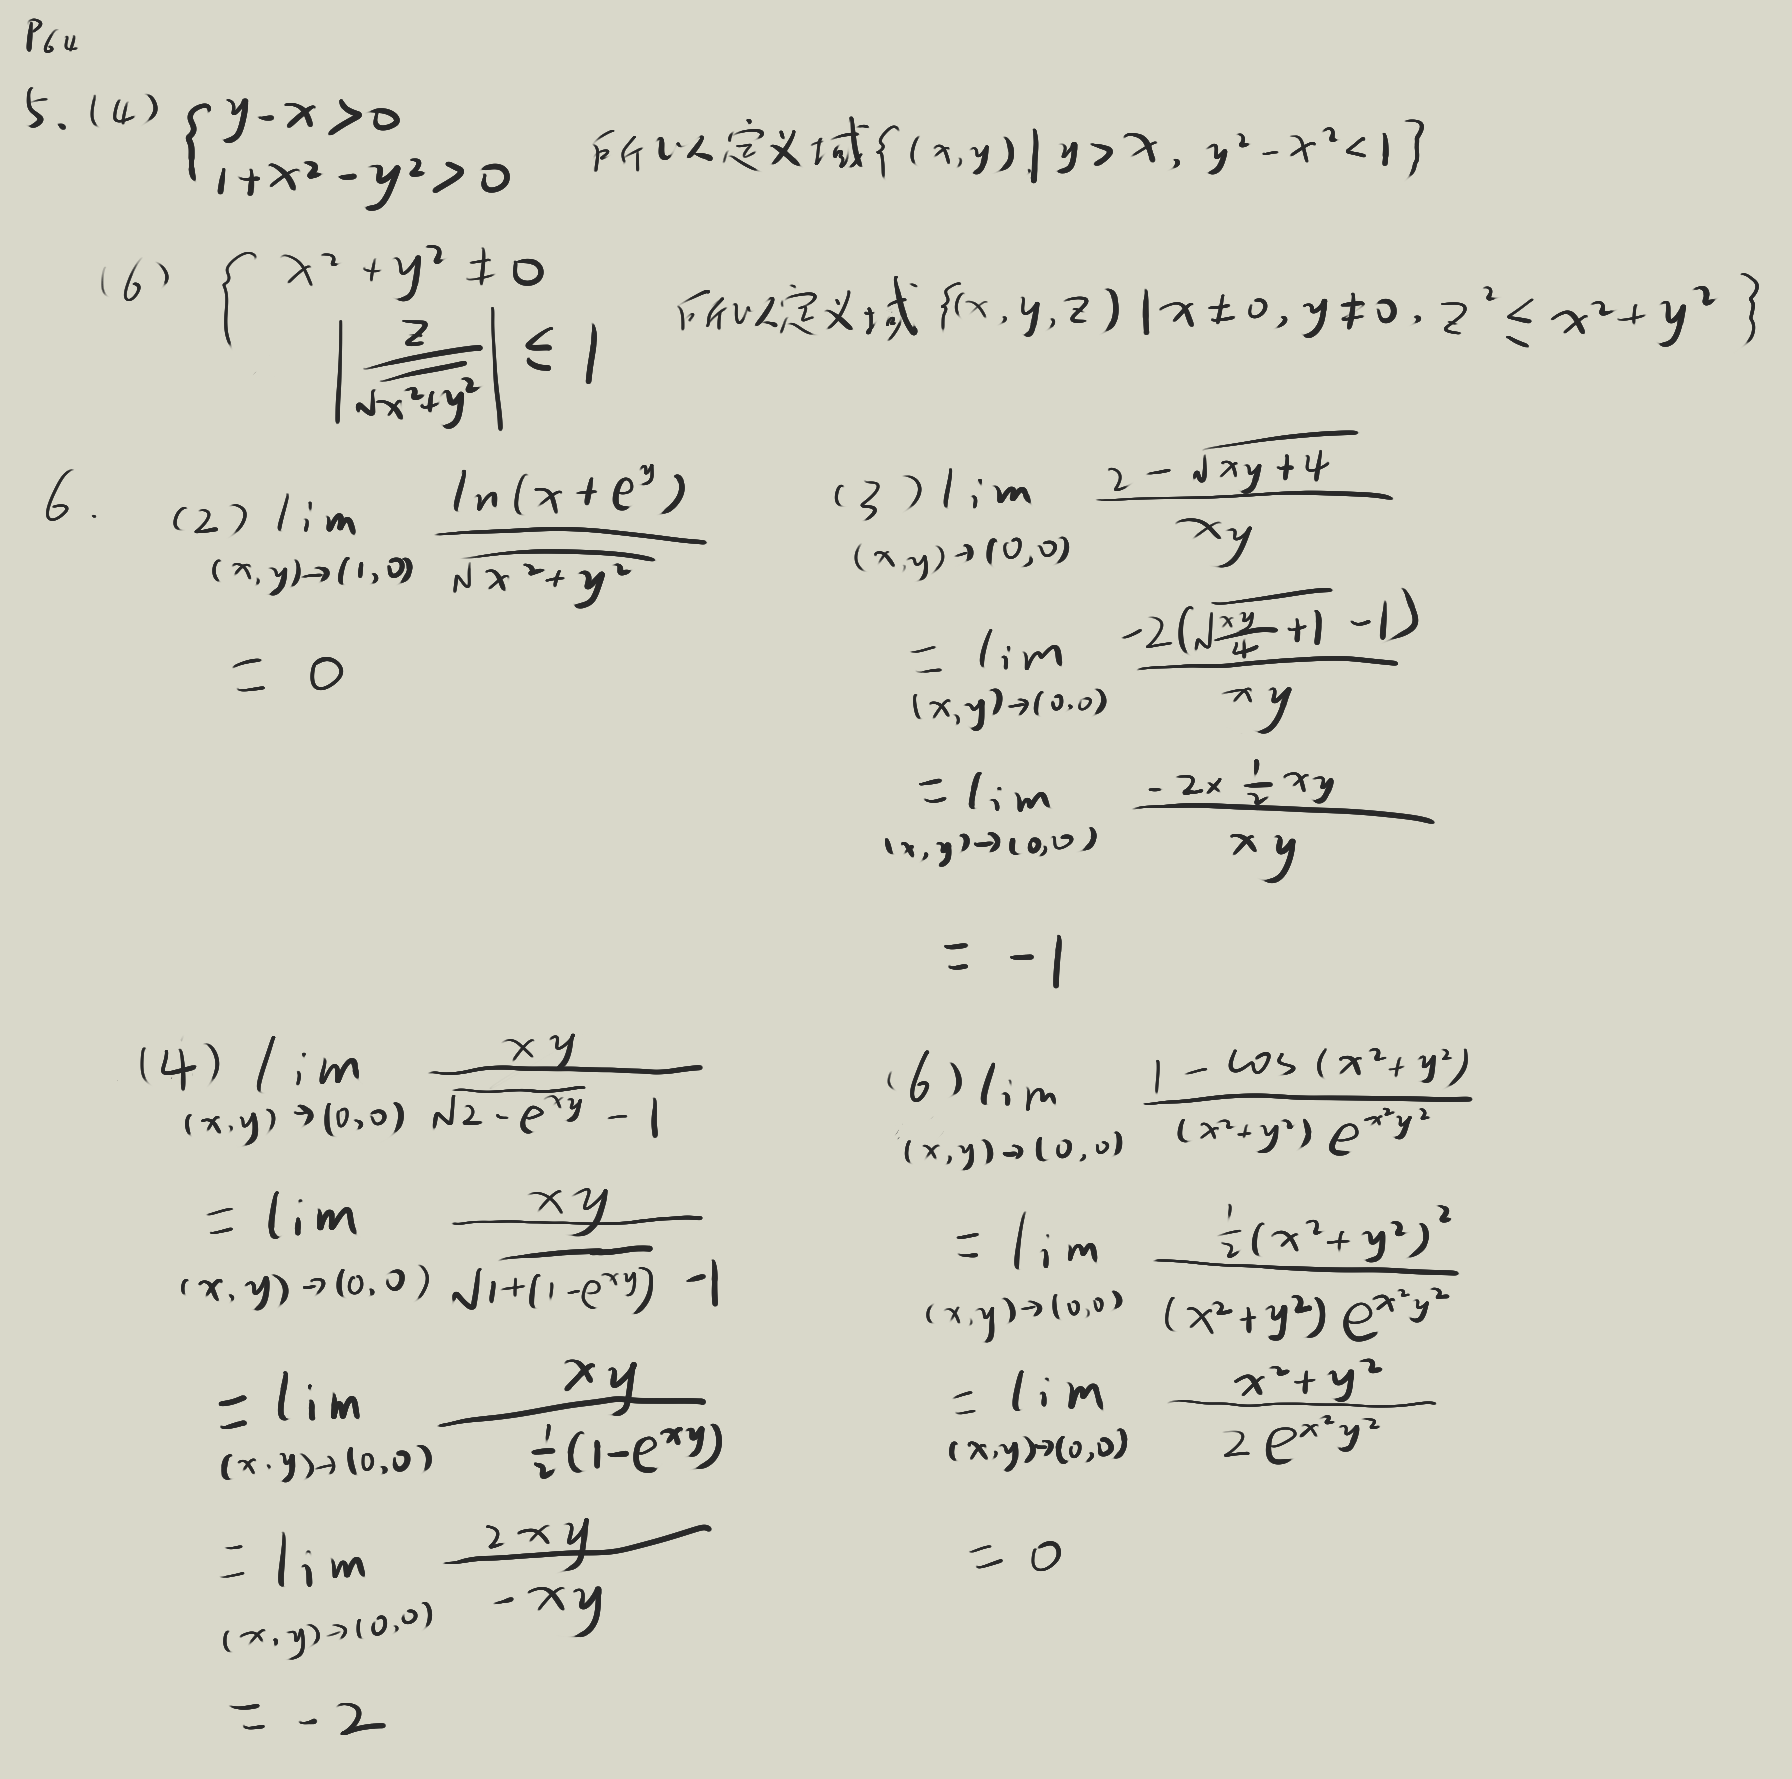 P64
5. (4) { y-x>0
1+x²-y²>0
所以定义域{(x,y)|y>x, y²-x²<1}
(6) { x²+y²≠0
|z/√(x²+y²)| ≤ 1
所以定义域{(x,y,z)|x≠0, y≠0, z²≤x²+y²}
6. (2) lim (x,y)→(1,0) ln(x+e^y)/√(x²+y²)
= 0
(3) lim (x,y)→(0,0) (2-√(xy+4))/(xy)
= lim (x,y)→(0,0) -2(√(xy/4+1)-1)/(xy)
= lim (x,y)→(0,0) (-2×½xy)/(xy)
= -1
(4) lim (x,y)→(0,0) xy/(√(2-e^{xy})-1)
= lim (x,y)→(0,0) xy/(√(1+(1-e^{xy}))-1)
= lim (x,y)→(0,0) xy/(½(1-e^{xy}))
= lim (x,y)→(0,0) 2xy/(-xy)
= -2
(6) lim (x,y)→(0,0) (1-cos(x²+y²))/((x²+y²)e^{x²y²})
= lim (x,y)→(0,0) ½(x²+y²)²/((x²+y²)e^{x²y²})
= lim (x,y)→(0,0) (x²+y²)/(2e^{x²y²})
= 0